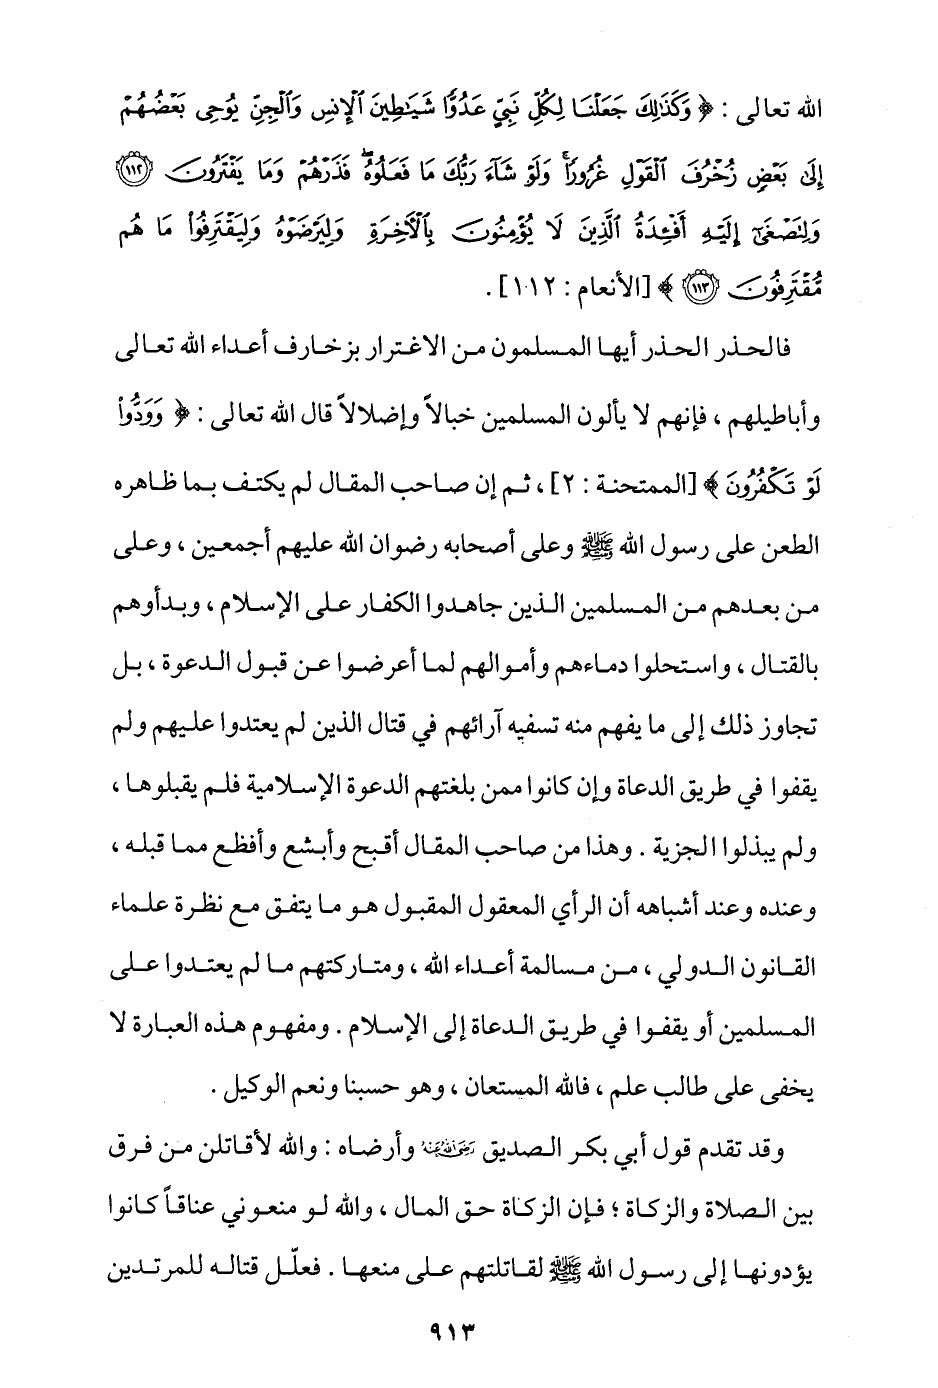 الله تعالى : ﴿ وَكَذَٰلِكَ جَعَلْنَا لِكُلِّ نَبِيٍّ عَدُوًّا شَيَاطِينَ ٱلْإِنسِ وَٱلْجِنِّ يُوحِى بَعْضُهُمْ
إِلَىٰ بَعْضٍ زُخْرُفَ ٱلْقَوْلِ غُرُورًا ۚ وَلَوْ شَآءَ رَبُّكَ مَا فَعَلُوهُ ۖ فَذَرْهُمْ وَمَا يَفْتَرُونَ ١١٢
وَلِتَصْغَىٰٓ إِلَيْهِ أَفْـِٔدَةُ ٱلَّذِينَ لَا يُؤْمِنُونَ بِٱلْـَٔاخِرَةِ وَلِيَرْضَوْهُ وَلِيَقْتَرِفُوا۟ مَا هُم
مُّقْتَرِفُونَ ١١٣ ﴾ [الأنعام : ١١٢] .
فالحذر الحذر أيها المسلمون من الاغترار بزخارف أعداء الله تعالى
وأباطيلهم ، فإنهم لا يألون المسلمين خبالاً وإضلالاً قال الله تعالى : ﴿ وَوَدُّوا۟
لَوْ تَكْفُرُونَ ﴾ [الممتحنة : ٢] ، ثم إن صاحب المقال لم يكتف بما ظاهره
الطعن على رسول الله ﷺ وعلى أصحابه رضوان الله عليهم أجمعين ، وعلى
من بعدهم من المسلمين الذين جاهدوا الكفار على الإسلام ، وبدأوهم
بالقتال ، واستحلوا دماءهم وأموالهم لما أعرضوا عن قبول الدعوة ، بل
تجاوز ذلك إلى ما يفهم منه تسفيه آرائهم في قتال الذين لم يعتدوا عليهم ولم
يقفوا في طريق الدعاة وإن كانوا ممن بلغتهم الدعوة الإسلامية فلم يقبلوها ،
ولم يبذلوا الجزية . وهذا من صاحب المقال أقبح وأبشع وأفظع مما قبله ،
وعنده وعند أشباهه أن الرأي المعقول المقبول هو ما يتفق مع نظرة علماء
القانون الدولي ، من مسالمة أعداء الله ، ومتاركتهم ما لم يعتدوا على
المسلمين أو يقفوا في طريق الدعاة إلى الإسلام . ومفهوم هذه العبارة لا
يخفى على طالب علم ، فالله المستعان ، وهو حسبنا ونعم الوكيل .
وقد تقدم قول أبي بكر الصديق رضي الله عنه وأرضاه : والله لأقاتلن من فرق
بين الصلاة والزكاة ؛ فإن الزكاة حق المال ، والله لو منعوني عناقاً كانوا
يؤدونها إلى رسول الله ﷺ لقاتلتهم على منعها . فعلّل قتاله للمرتدين
٩١٣